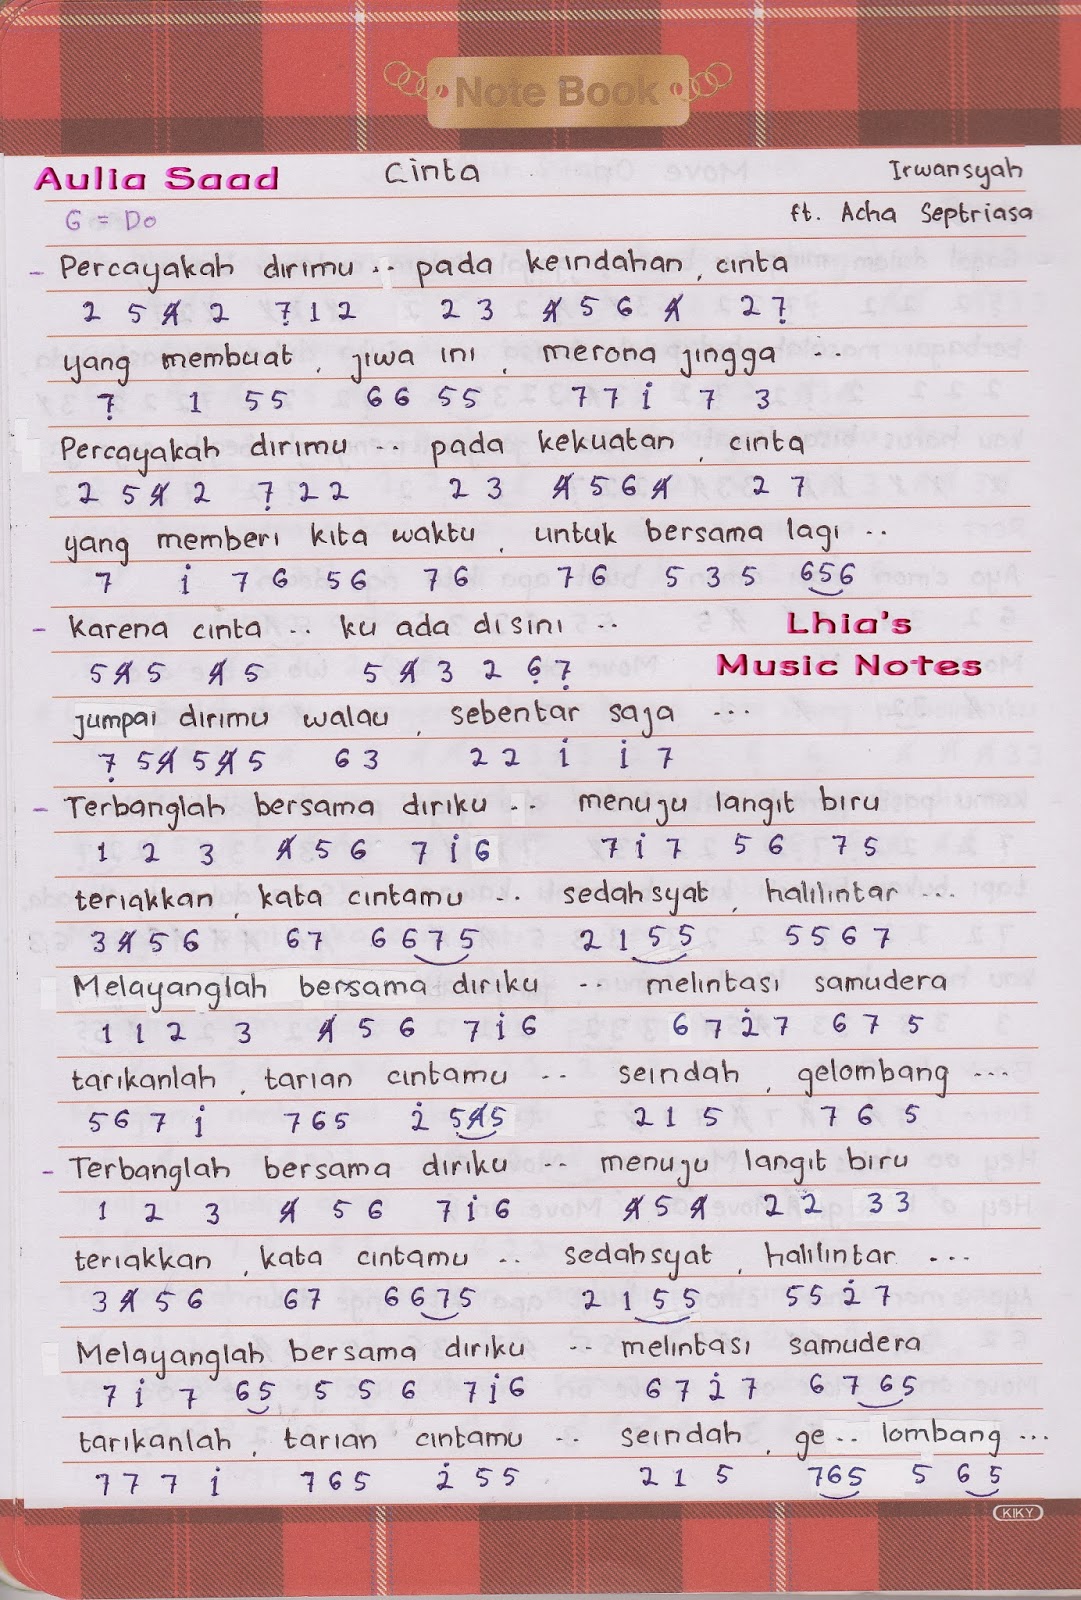 Note Book
Aulia Saad Cinta Irwansyah
G = Do ft. Acha Septriasa
- Percayakah dirimu .. pada keindahan, cinta
2 5 4̸ 2 7̣ 1 2 2 3 4̸ 5 6 4̸ 2 7̣
yang membuat, jiwa ini, merona jingga ...
7̣ 1 5 5 6 6 5 5 7 7 1̇ 7 3
Percayakah dirimu ... pada kekuatan, cinta
2 5 4̸ 2 7̣ 2 2 2 3 4̸ 5 6 4̸ 2 7
yang memberi kita waktu, untuk bersama lagi ..
7 1̇ 7 6 5 6 7 6 7 6 5 3 5 6 5 6
- Karena cinta .. ku ada disini .. Lhia's
5 4̸ 5 4̸ 5 5 4̸ 3 2 6̣ 7̣ Music Notes
jumpai dirimu walau, sebentar saja ...
7̣ 5 4̸ 5 4̸ 5 6 3 2 2 1̇ 1̇ 7
- Terbanglah bersama diriku .. menuju langit biru
1 2 3 4̸ 5 6 7 1̇ 6 7 1̇ 7 5 6 7 5
teriakkan, kata cintamu ... sedahsyat, halilintar ...
3 4̸ 5 6 6 7 6 6 7 5 2 1 5 5 5 5 6 7
Melayanglah bersama diriku .. melintasi samudera
1 1 2 3 4̸ 5 6 7 1̇ 6 6 7 2̇ 7 6 7 5
tarikanlah, tarian cintamu .. seindah, gelombang ...
5 6 7 1̇ 7 6 5 2̇ 5 4̸ 5 2 1 5 7 6 5
- Terbanglah bersama diriku .. menuju langit biru
1 2 3 4̸ 5 6 7 1̇ 6 4̸ 5 4̸ 2 2 3 3
teriakkan, kata cintamu .. sedahsyat, halilintar ...
3 4̸ 5 6 6 7 6 6 7 5 2 1 5 5 5 5 2̇ 7
Melayanglah bersama diriku .. melintasi samudera
7 1̇ 7 6 5 5 5 6 7 1̇ 6 6 7 2̇ 7 6 7 6 5
tarikanlah, tarian cintamu .. seindah, ge .. lombang ...
7 7 7 1̇ 7 6 5 2̇ 5 5 2 1 5 7 6 5 5 6 5
KIKY